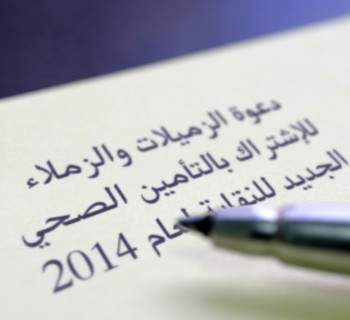 دعوة الزميلات والزملاء
للإشتراك بالتأمين الصحي
الجديد للنقابة لعام 2014